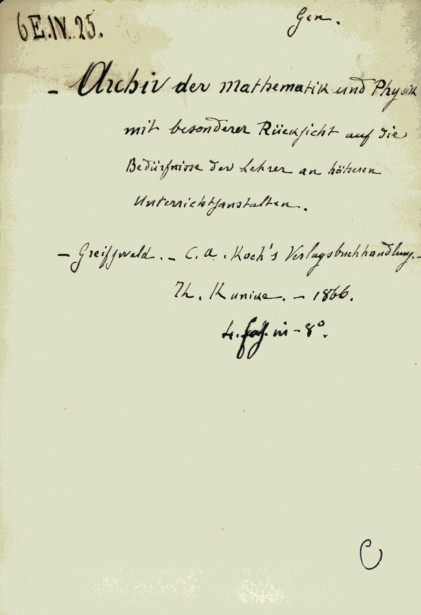 6 E.IV. 25.
Gen.
- Archiv der Mathematik und Physik
mit besonderer Rücksicht auf die
Bedürfnisse der Lehrer an höheren
Unterrichtsanstalten.
- Greifswald. - C. A. Koch's Verlagsbuchhandlung. -
Th. Kunike. - 1866.
4. fas. in - 8°.
C